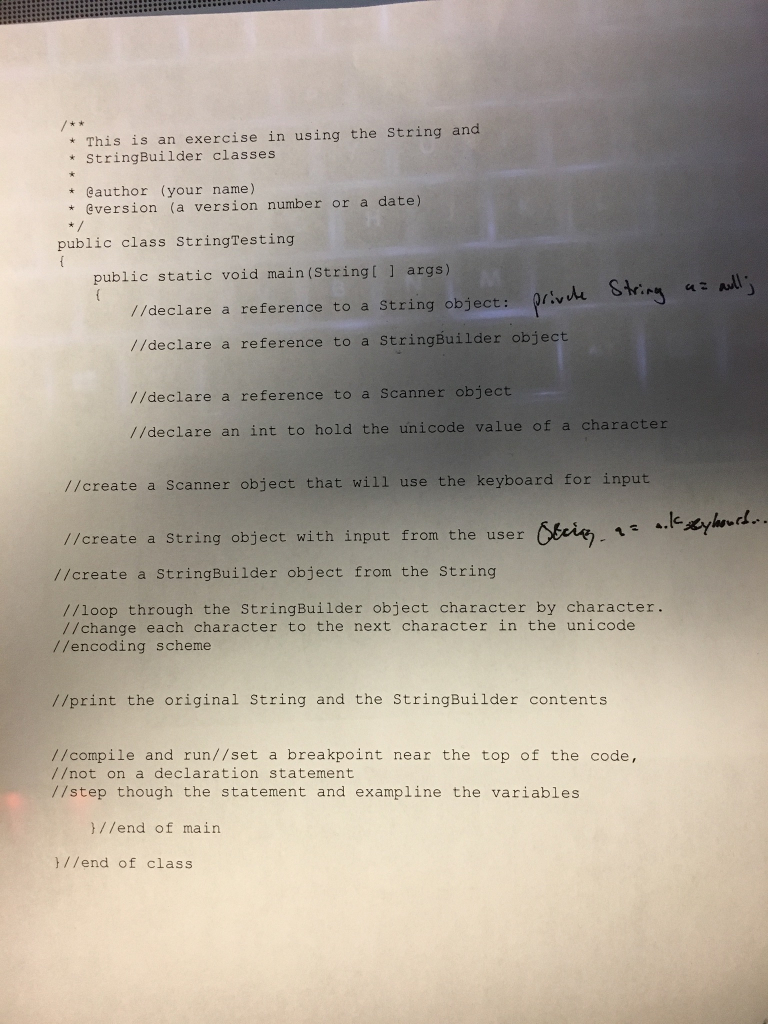 /**
* This is an exercise in using the String and
* StringBuilder classes
*
* @author (your name)
* @version (a version number or a date)
*/
public class StringTesting
{
public static void main(String[ ] args)
{
//declare a reference to a String object: private String a = null;
//declare a reference to a StringBuilder object
//declare a reference to a Scanner object
//declare an int to hold the unicode value of a character
//create a Scanner object that will use the keyboard for input
//create a String object with input from the user String a =
//create a StringBuilder object from the String
//loop through the StringBuilder object character by character.
//change each character to the next character in the unicode
//encoding scheme
//print the original String and the StringBuilder contents
//compile and run//set a breakpoint near the top of the code,
//not on a declaration statement
//step though the statement and exampline the variables
}//end of main
}//end of class